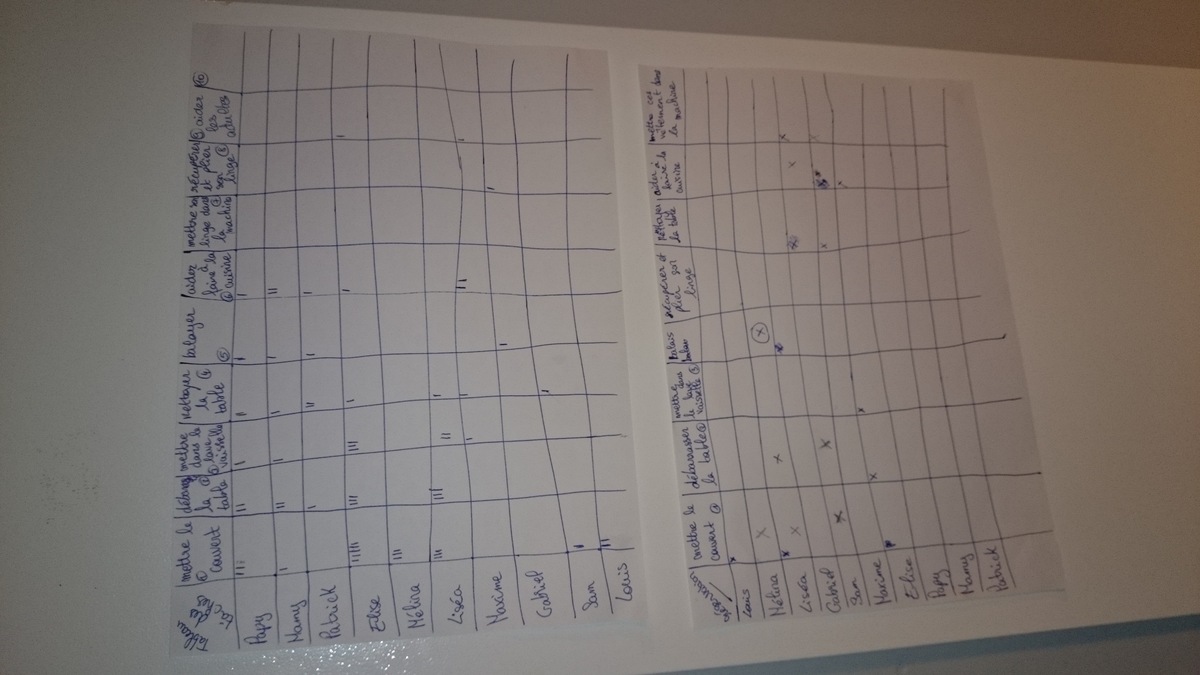 Tableau des tâches
mettre le couvert ①
la table ②
mettre dans le lave vaisselle ③
Nettoyer la table ④
balayer ⑤
aider à faire la cuisine ⑥
mettre son linge dans la machine ⑦
récupérer et plier son linge ⑧
⑨ aider les adultes
⑩
Papy III II I II I I
Mamy I II I I I II
Patrick I II I I
Elise IIIII III III I I I
Mélina III
Liséa III III II I
Maxime I I II I I
Gabriel I
Sam I I
Louis II
réservation
mettre le couvert ①
débarrasser la table ②
mettre dans le lave vaisselle ③
balais
récupérer et plier son linge
Nettoyer la table
aider à faire la cuisine
mettre ces vêtement dans la machine
Louis x
Mélina x x
Liséa x x x
Gabriel x x
Sam x x x
Maxime x x
Elise
Papy
Mamy
Patrick